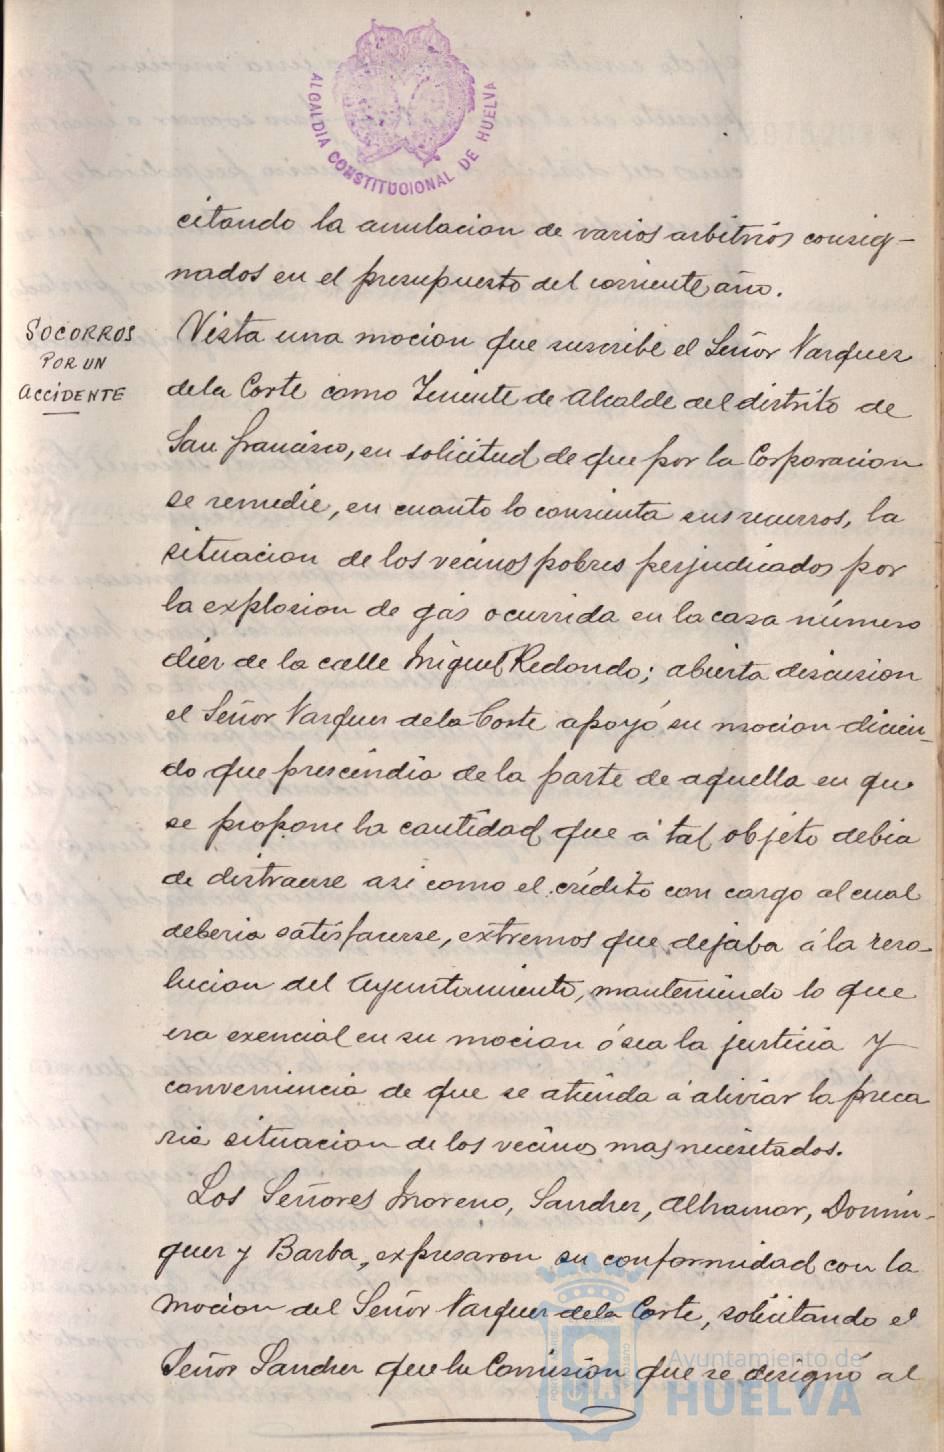 ALCALDIA CONSTITUCIONAL DE HUELVA
citando la anulacion de varios arbitrios consig-
nados en el presupuesto del corriente año.
SOCORROS
POR UN
ACCIDENTE
Vista una mocion que suscribe el Señor Vazquez
de la Corte como Teniente de Alcalde del distrito de
San Francisco, en solicitud de que por la Corporacion
se remedie, en cuanto lo consienta sus recursos, la
situacion de los vecinos pobres perjudicados por
la explosion de gas ocurrida en la casa número
diez de la calle Miguel Redondo; abierta discusion
el Señor Vazquez de la Corte apoyó su mocion dicien-
do que prescindia de la parte de aquella en que
se propone la cantidad que á tal objeto debia
de distraerse asi como el crédito con cargo al cual
deberia satisfacerse, extremos que dejaba á la reso-
lucion del Ayuntamiento, manteniendo lo que
era exencial en su mocion ó sea la justicia y
conveniencia de que se atienda á aliviar la preca
ria situacion de los vecinos mas necesitados.
Los Señores Moreno, Sanchez, Alhamar, Domin-
guez y Barba, expresaron su conformidad con la
mocion del Señor Vazquez de la Corte, solicitando el
Señor Sanchez que la Comisión que se designó al
Ayuntamiento de
HUELVA